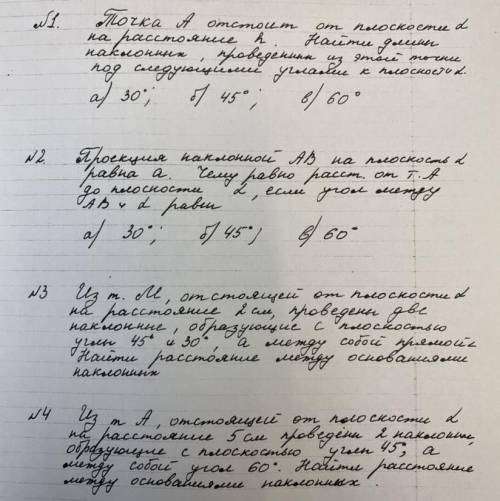 №1. Точка А отстоит от плоскости α
на расстояние h. Найти длины
наклонных, проведенных из этой точки
под следующими углами к плоскости α.
а) 30°; б) 45°; в) 60°
№2. Проекция наклонной АВ на плоскость α
равна а. Чему равно расст. от т. А
до плоскости α, если угол между
АВ и α равен
а) 30°; б) 45°; в) 60°
№3 Из т. М, отстоящей от плоскости α
на расстояние 2 см, проведены две
наклонные, образующие с плоскостью
углы 45° и 30°, а между собой прямой∠
Найти расстояние между основаниями
наклонных
№4 Из т А, отстоящей от плоскости α
на расстояние 5 см проведены 2 наклонные,
образующие с плоскостью углы 45°, а
между собой угол 60°. Найти расстояние
между основаниями наклонных.